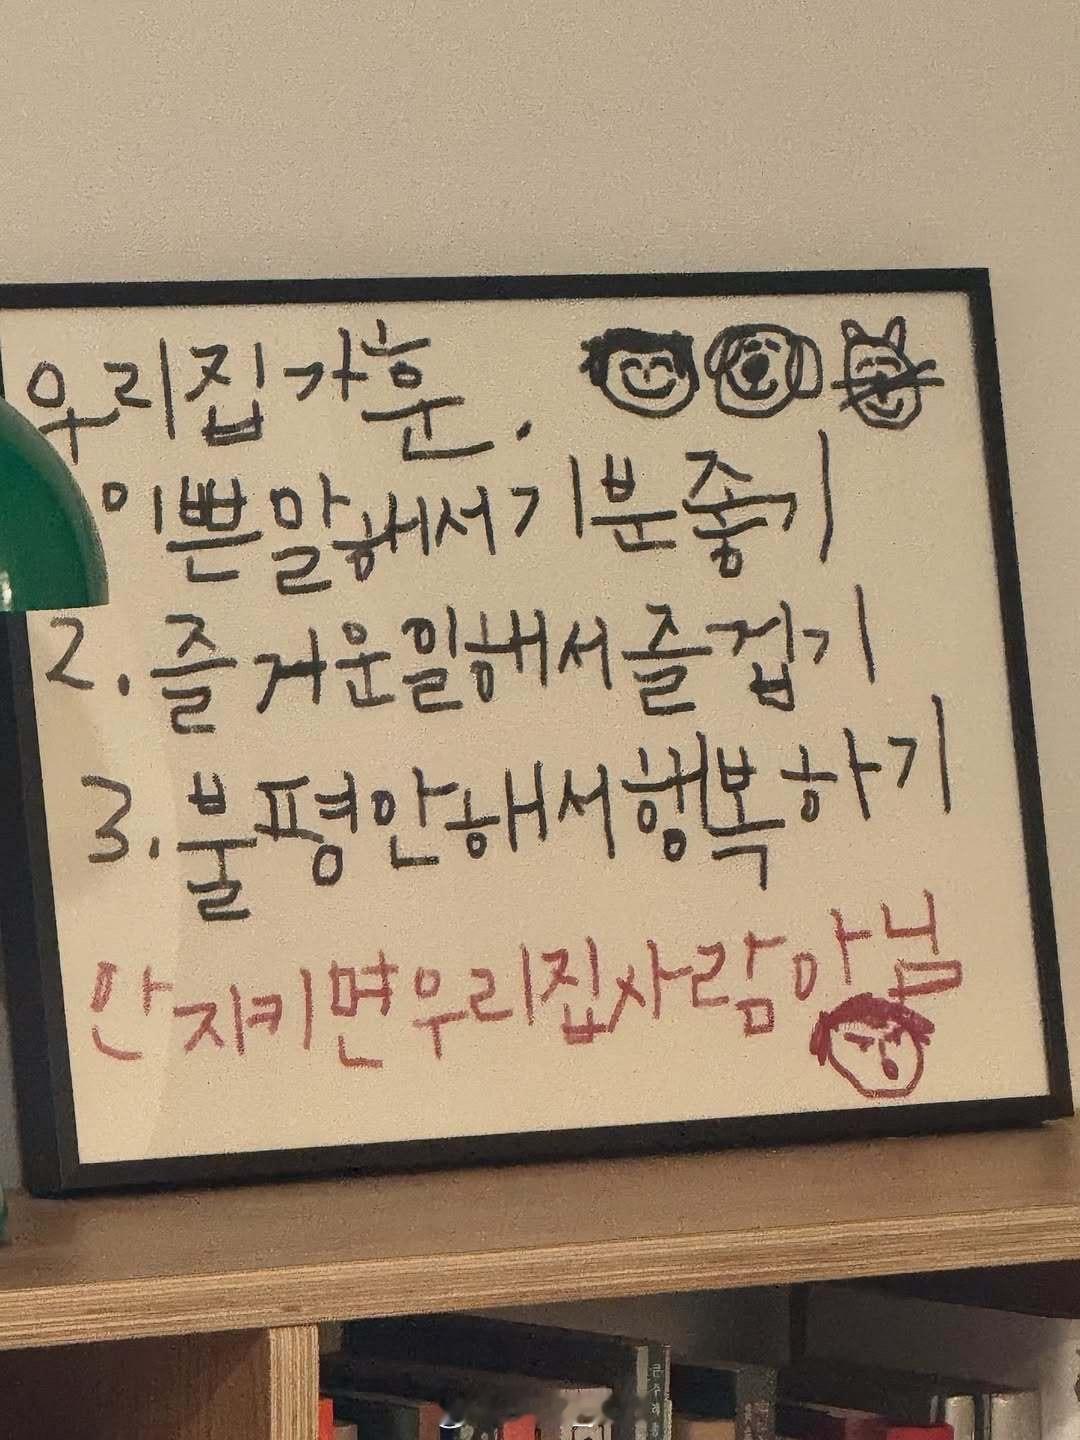 우리집 가훈.
이쁜말해서 기분좋기
2. 즐거운일해서즐겁기
3. 불평안해서행복하기
안지키면우리집사람아님